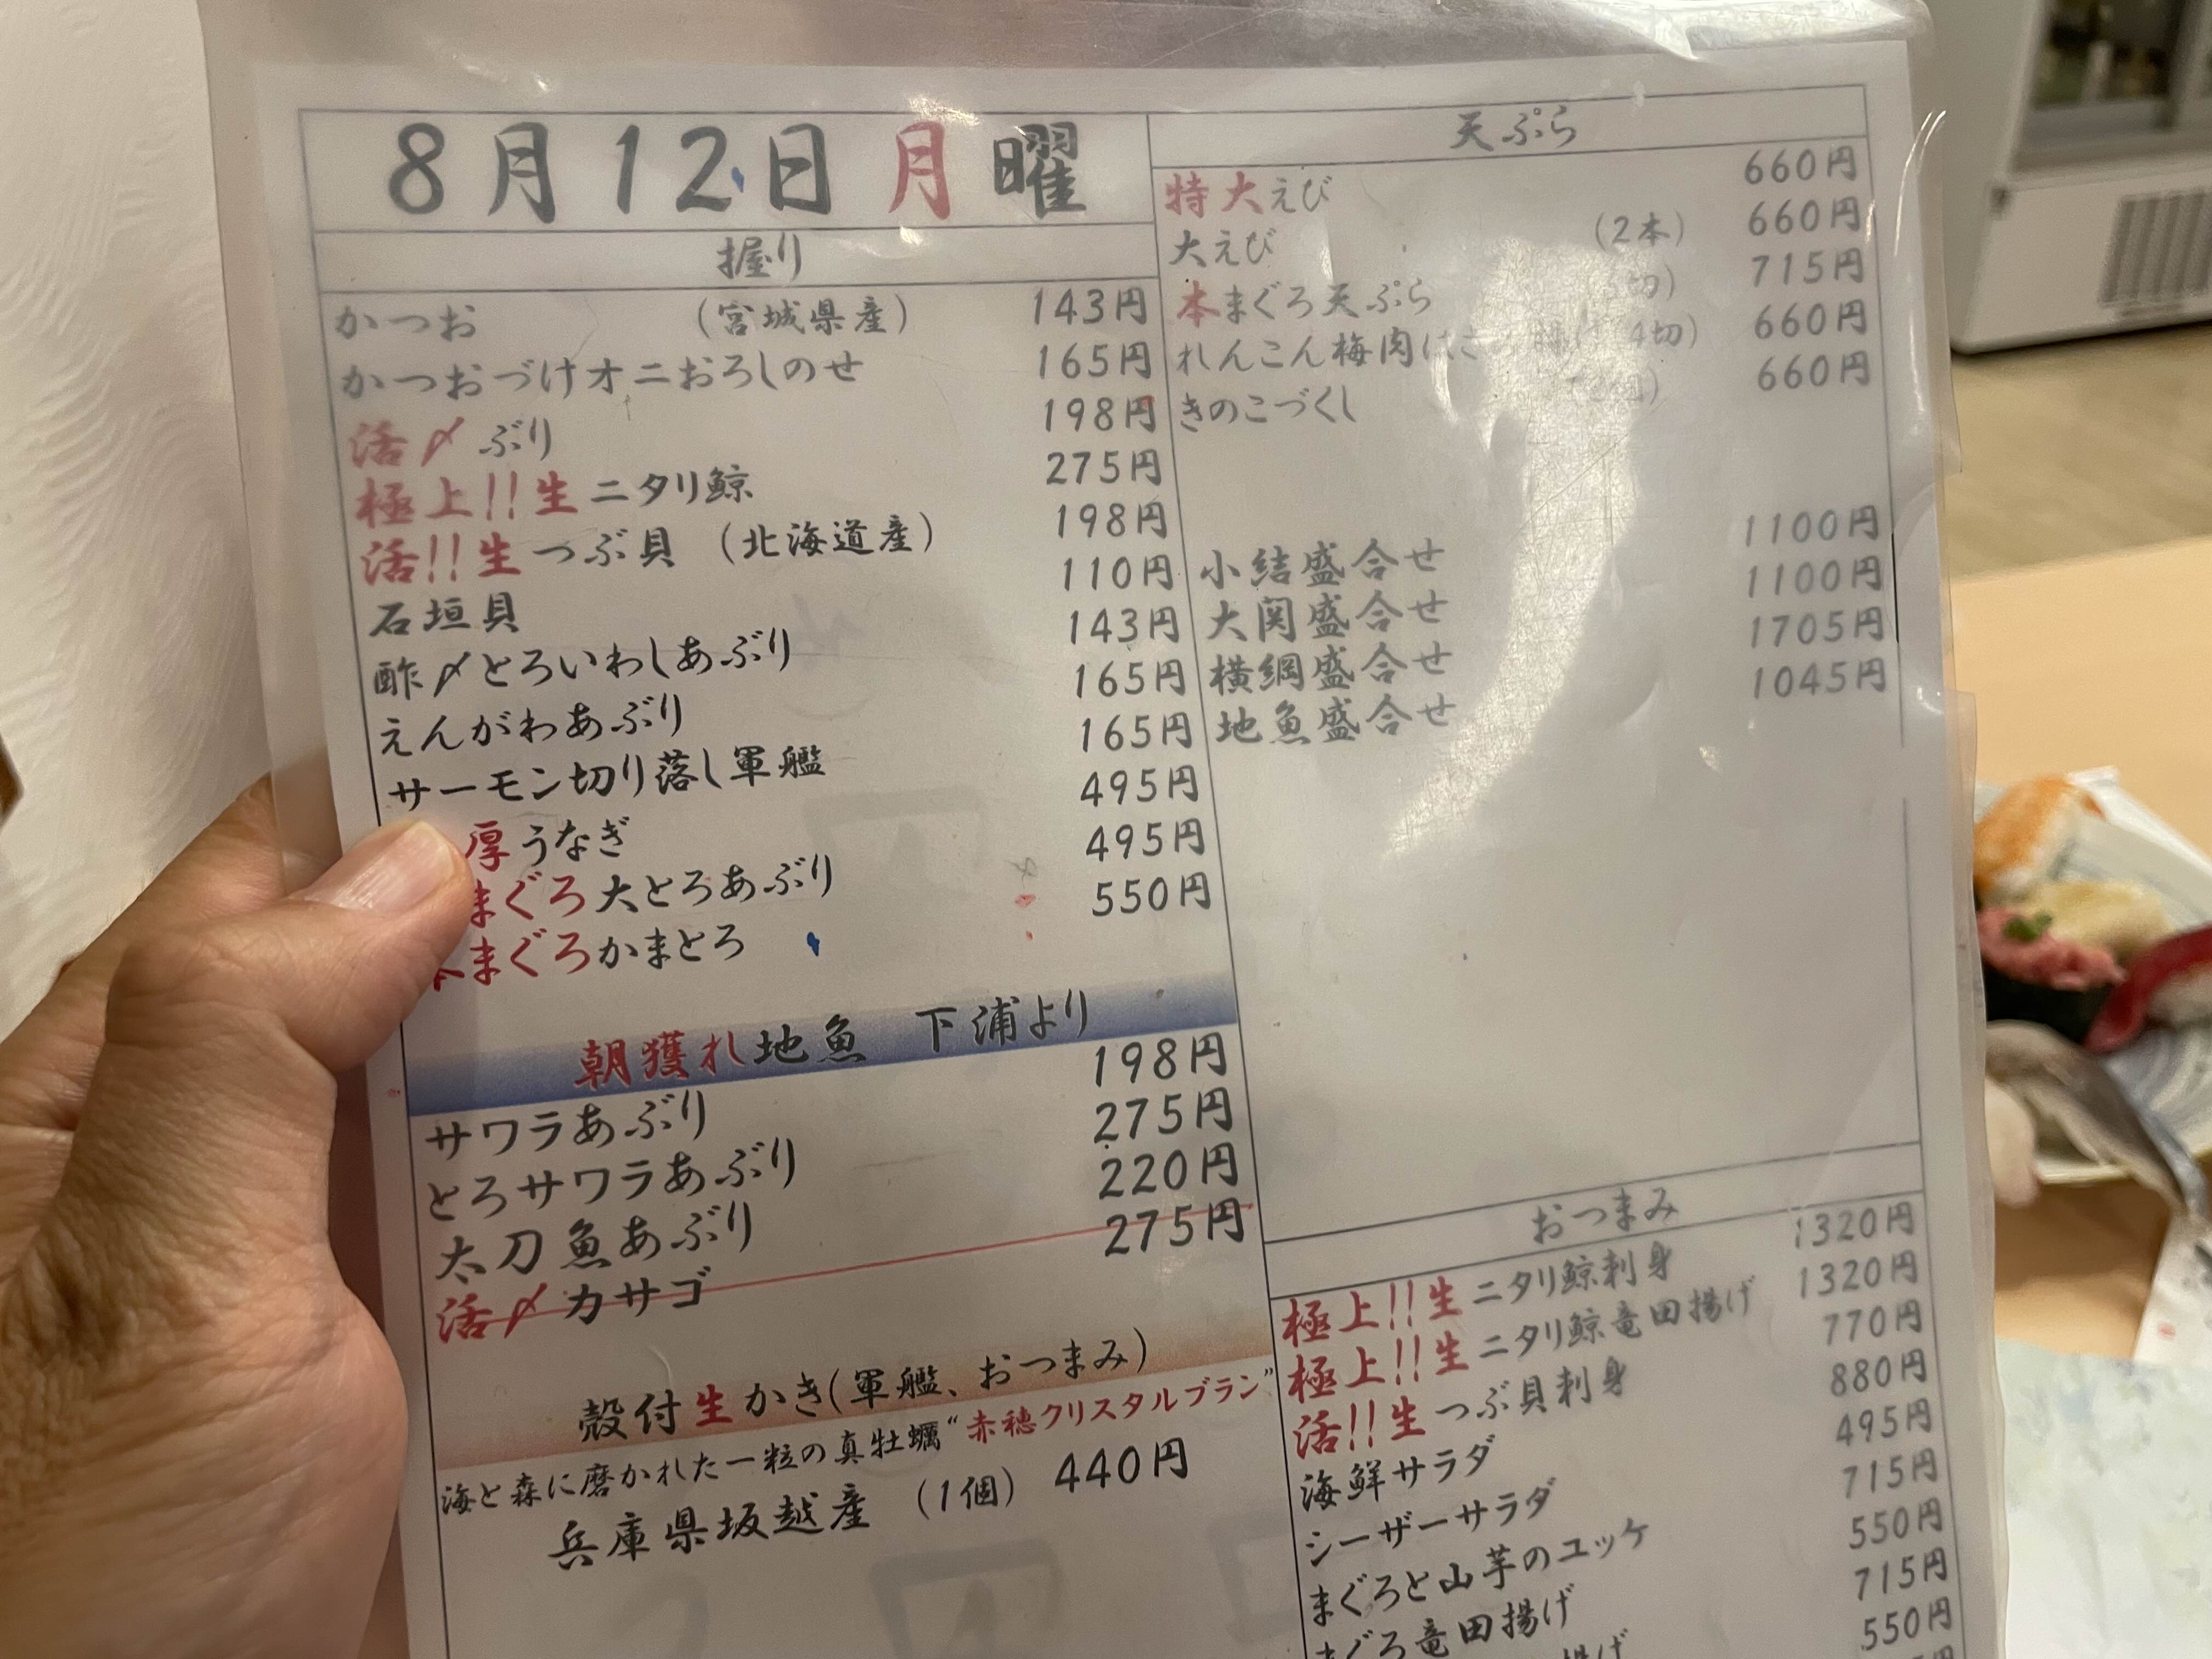 8月12日月曜
握り
かつお (宮城県産) 143円
かつおづけオニおろしのせ 165円
活〆ぶり 198円
極上!!生ニタリ鯨 275円
活!!生つぶ貝 (北海道産) 198円
石垣貝 110円
酢〆とろいわしあぶり 143円
えんがわあぶり 165円
サーモン切り落し軍艦 165円
厚うなぎ 495円
まぐろ大とろあぶり 495円
本まぐろかまとろ 550円
朝獲れ地魚 下浦より
サワラあぶり 198円
とろサワラあぶり 275円
太刀魚あぶり 220円
活〆カサゴ 275円
殻付生かき(軍艦、おつまみ)
海と森に磨かれた一粒の真牡蠣"赤穂クリスタルブラン"
兵庫県坂越産 (1個) 440円
天ぷら
特大えび 660円
大えび (2本) 660円
本まぐろ天ぷら 切) 715円
れんこん梅肉はさみ揚げ 4切) 660円
きのこづくし 660円
小結盛合せ 1100円
大関盛合せ 1100円
横綱盛合せ 1705円
地魚盛合せ 1045円
おつまみ
極上!!生ニタリ鯨刺身 1320円
極上!!生ニタリ鯨竜田揚げ 1320円
活!!生つぶ貝刺身 770円
海鮮サラダ 880円
シーザーサラダ 495円
まぐろと山芋のユッケ 715円
まぐろ竜田揚げ 550円
揚げ 715円
550円